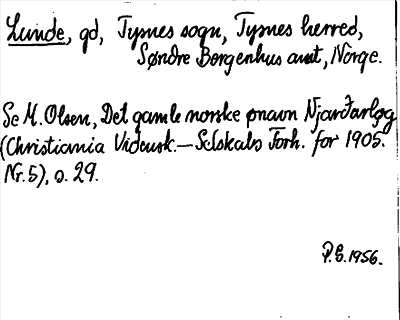 Lunde, gd, Tysnes sogn, Tysnes herred,
Søndre Bergenhus amt, Norge.
Se M. Olsen, Det gamle norske ønavn Njarðarlǫg
(Christiania Vidensk.-Selskabs Forh. for 1905.
Nr. 5), s. 29.
P.G. 1956.